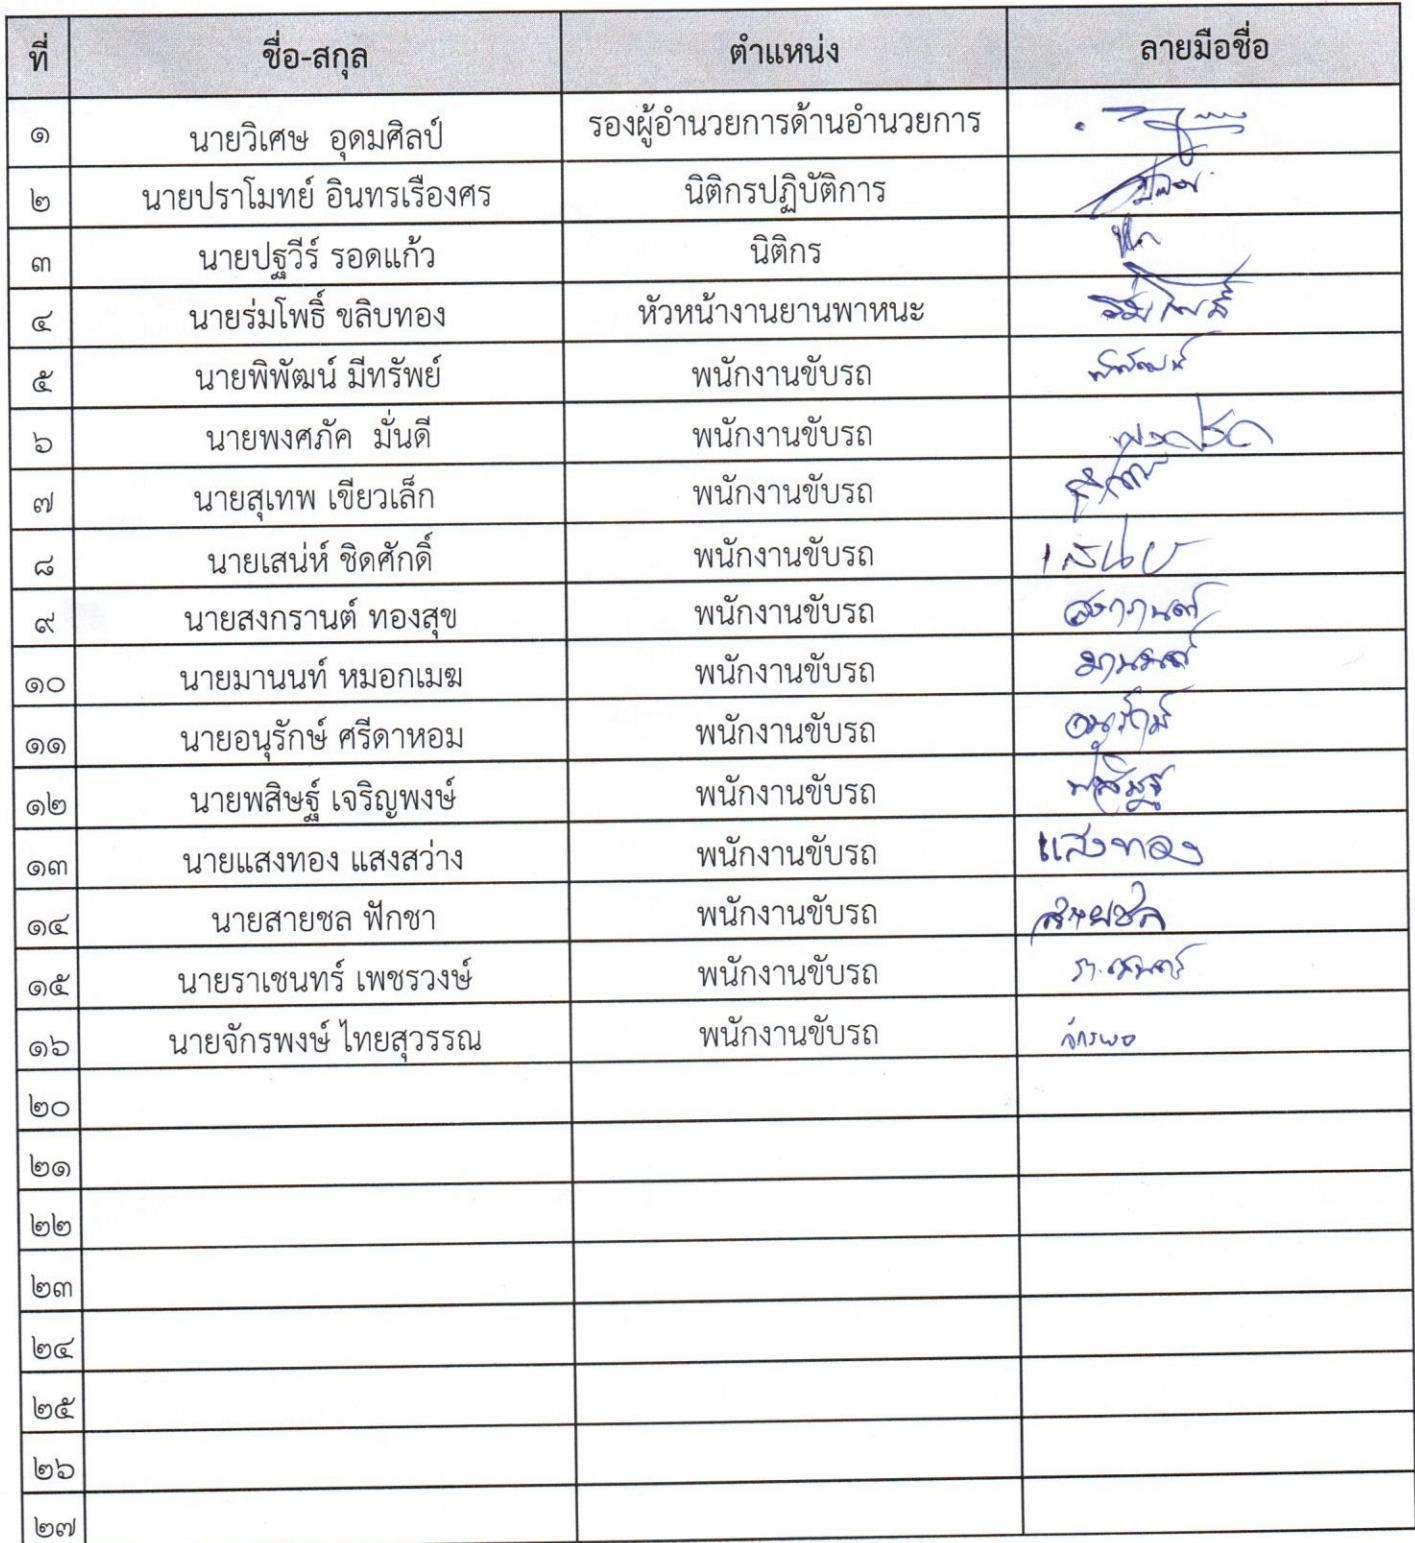 ที่ ชื่อ-สกุล ตำแหน่ง ลายมือชื่อ
๑ นายวิเศษ อุดมศิลป์ รองผู้อำนวยการด้านอำนวยการ
๒ นายปราโมทย์ อินทรเรืองศร นิติกรปฏิบัติการ
๓ นายปฐวีร์ รอดแก้ว นิติกร
๔ นายร่มโพธิ์ ขลิบทอง หัวหน้างานยานพาหนะ ร่มโพธิ์
๕ นายพิพัฒน์ มีทรัพย์ พนักงานขับรถ พิพัฒน์
๖ นายพงศภัค มั่นดี พนักงานขับรถ
๗ นายสุเทพ เขียวเล็ก พนักงานขับรถ
๘ นายเสน่ห์ ชิดศักดิ์ พนักงานขับรถ
๙ นายสงกรานต์ ทองสุข พนักงานขับรถ สงกรานต์
๑๐ นายมานนท์ หมอกเมฆ พนักงานขับรถ
๑๑ นายอนุรักษ์ ศรีดาหอม พนักงานขับรถ อนุรักษ์
๑๒ นายพสิษฐ์ เจริญพงษ์ พนักงานขับรถ พสิษฐ์
๑๓ นายแสงทอง แสงสว่าง พนักงานขับรถ แสงทอง
๑๔ นายสายชล ฟักชา พนักงานขับรถ สายชล
๑๕ นายราเชนทร์ เพชรวงษ์ พนักงานขับรถ ราเชนทร์
๑๖ นายจักรพงษ์ ไทยสุวรรณ พนักงานขับรถ
๒๐
๒๑
๒๒
๒๓
๒๔
๒๕
๒๖
๒๗